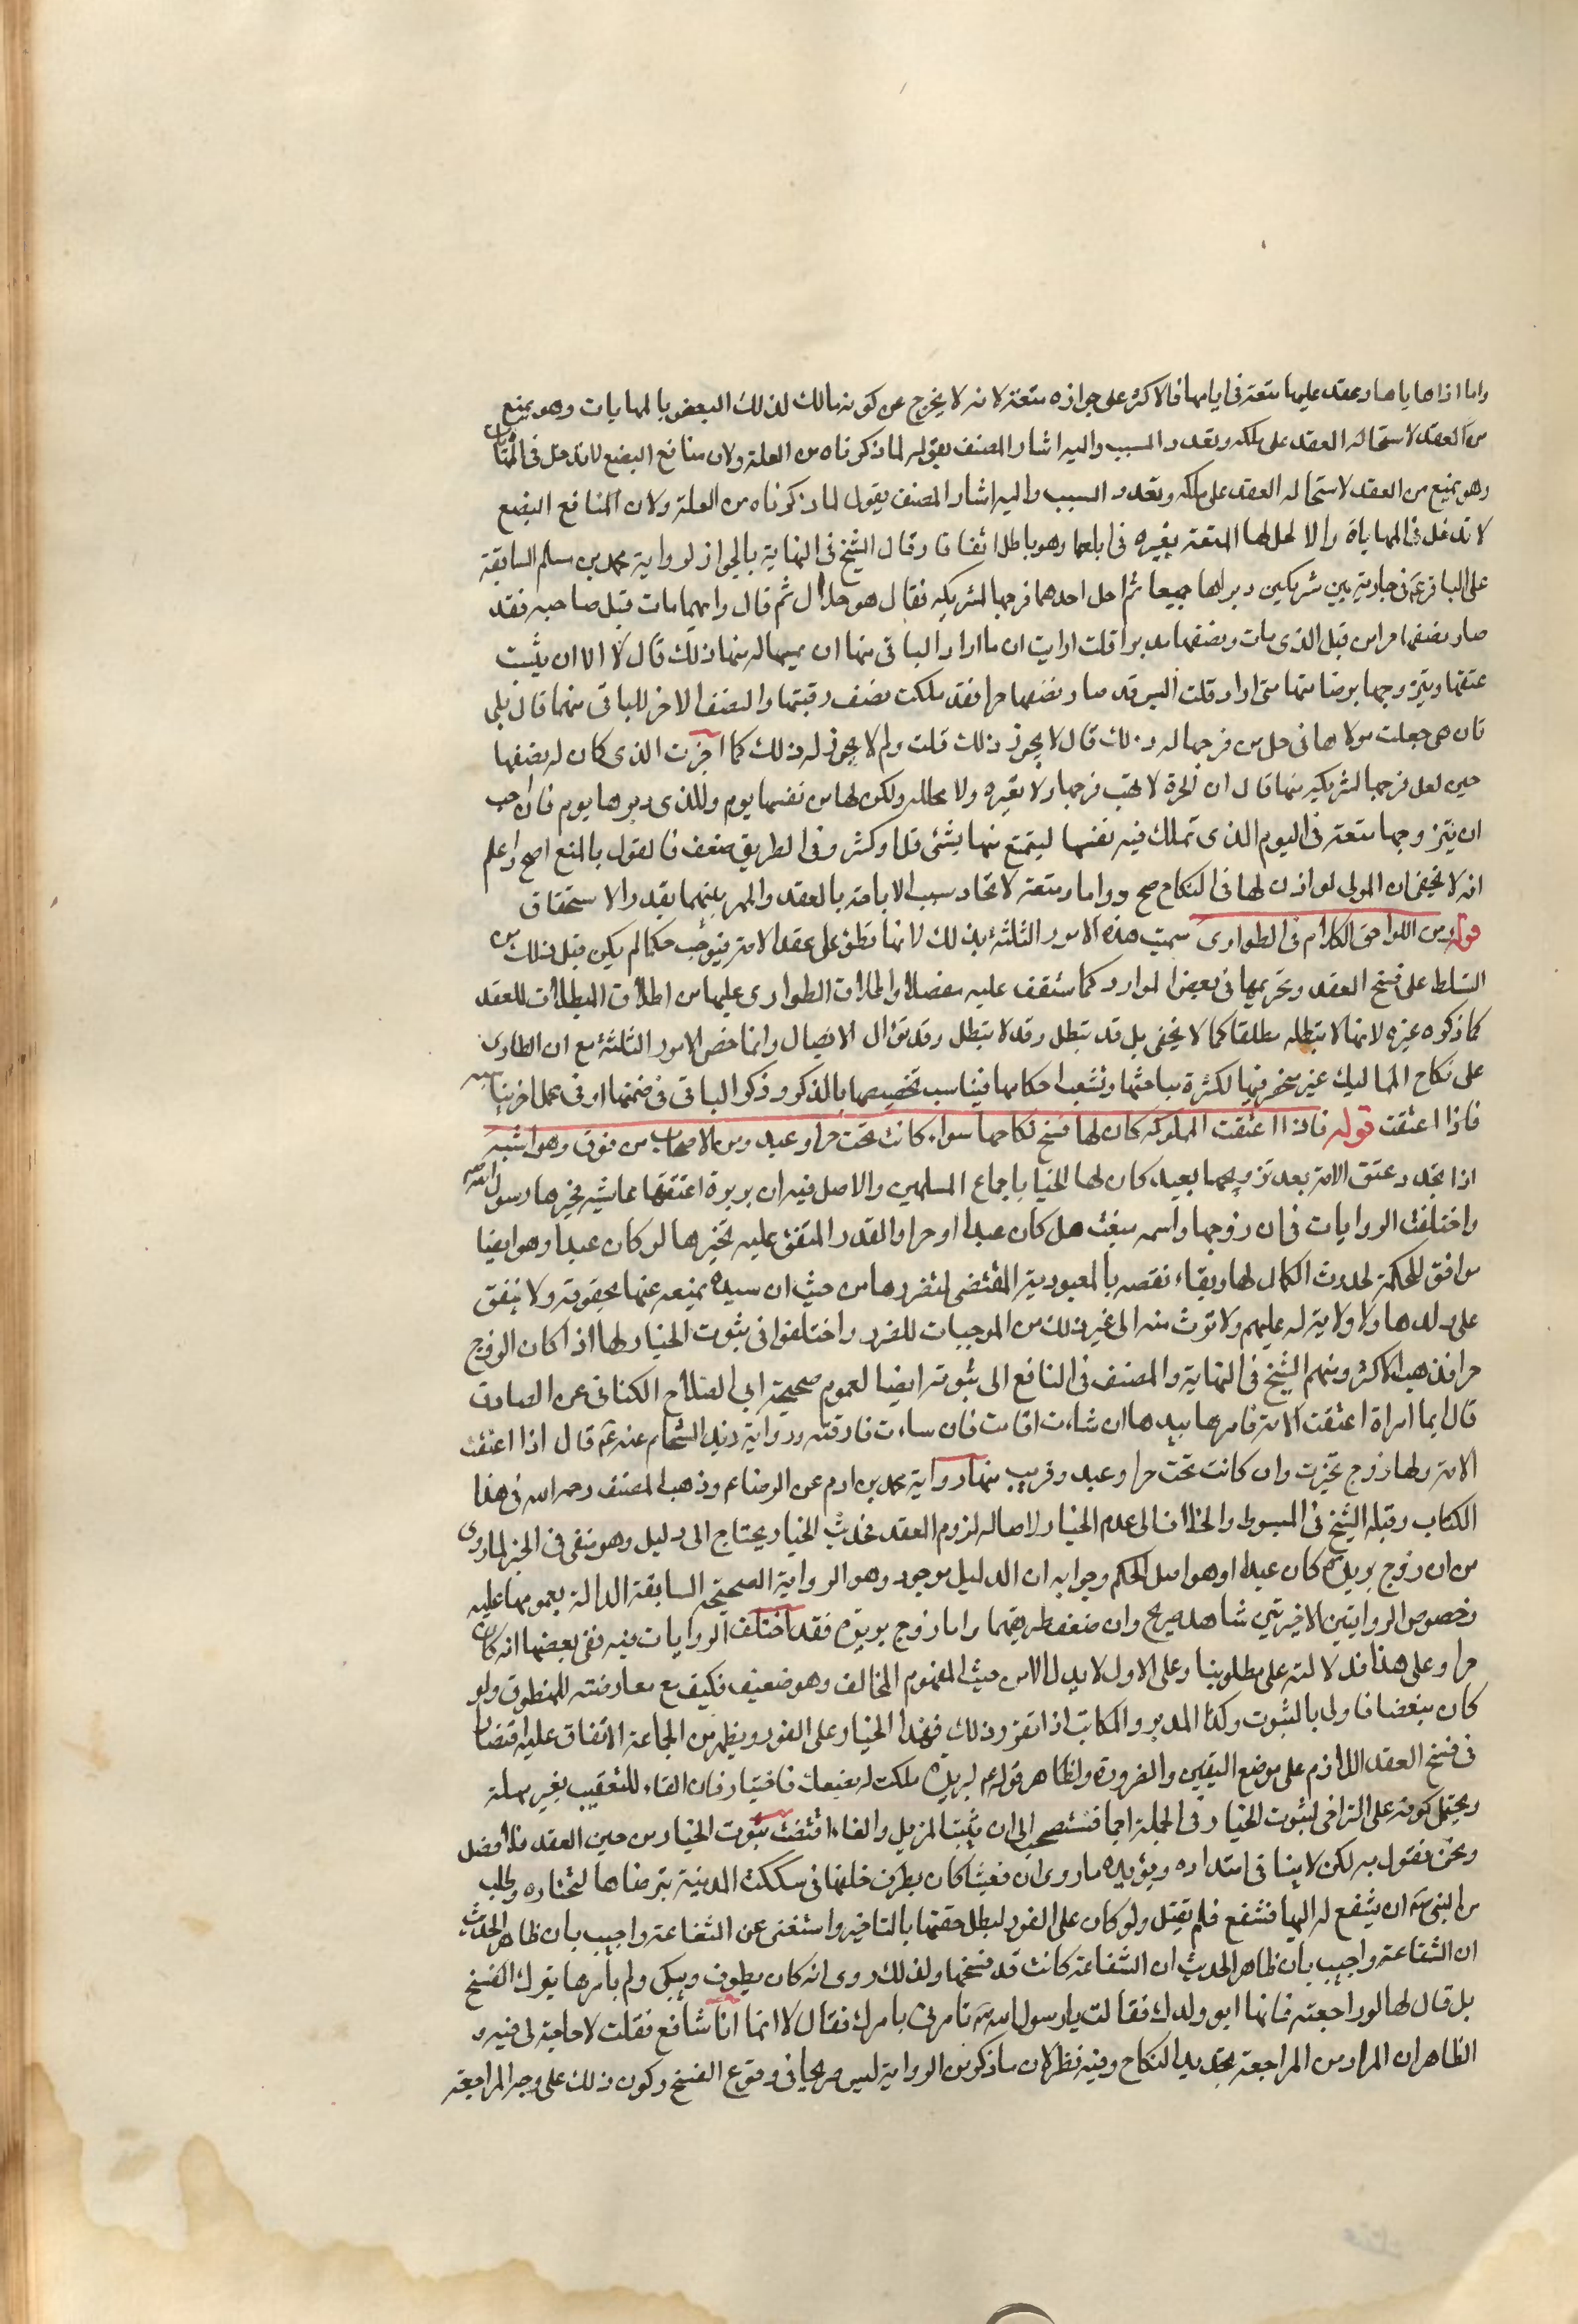 واما اذا هاياها وعقد عليها متعة في ايامها فالاكثر على جوازه متعة لانه لا يخرج عن كونه مالك لذلك البعض بالمهايات وهو يمنع
من العقد لاستحالة العقد على ملكه وتعدد السبب واليه اشار المصنف بقوله لما ذكرناه من العلة ولان منافع البضع لا تدخل في المهايات
وهو يمنع من العقد لاستحالة العقد على ملكه وتعدد السبب واليه اشار المصنف بقول لما ذكرناه من العلة ولان المنافع البضع
لا تدخل في المهاياة والا لحل لها المتعة بغيره في ايامها وهو باطل اتفاقا وقال الشيخ في النهاية بالجواز لرواية محمد بن مسلم السابقة
على الباقر ع في جارية بين شريكين دبراها جميعا ثم احل احدهما فرجها لشريكه فقال هو حلال ثم قال وايهما مات قبل صاحبه فقد
صار نصفها حرا من قبل الذي مات ونصفها مدبرا قلت ارايت ان ما اراد الباقي منها ان يمسها له منها ذلك قال لا الا ان يثبت
عتقها ويتزوجها برضا منها متى اراد قلت اليس قد صار نصفها حرا فقد ملكت نصف رقبتها والنصف الاخر للباقي منهما قال بلى
قان هي جعلت مولاها في حل من فرجها له ذلك قال لا يجوز ذلك قلت ولم لا يجوز له ذلك كما اجزت الذي كان له نصفها
حين لعل فرجها لشريكه منها قال ان الحرة لا تهب فرجها ولا تعيره ولا تحلله ولكن لها من نفسها يوم وللذي دبرها يوم فان احب
ان يتزوجها متعة في اليوم الذي تملك فيه نفسها ليتمتع منها بشئ قل او كثر وفي الطريق ضعف فالقول بالمنع اصح واعلم
انه لا يخفى ان المولى لو اذن لها في النكاح صح دواما ومتعة لاتحاد سبب الاباحة بالعقد والمهر بينهما بقدر الاستحقاق
قوله ومن اللواحق الكلام في الطوارى سميت هذه الامور الثلثة بذلك لانها تطرق على عقد الامة فيوجب حكما لم يكن قبل ذلك من
التسلط على فسخ العقد وتحريمها في بعض الموارد كما ستقف عليه مفصلا واطلاق الطوارى عليها من اطلاق البطلان للعقد
كما ذكره غيره لانها لا تبطله مطلقا كما لا يخفى بل قد تبطل وقد لا تبطل وقد تؤل الاتصال وانما خص الامور الثلثة مع ان الطارى
على نكاح المماليك غير منحصر فيها لكثرة مباحثها وتشعب احكامها فيناسب تخصيصها بالذكر وذكر الباقي في ضمنها او في محل اخر يناسبه
فاذا اعتقت قوله فاذا اعتقت المملوكة كان لها فسخ نكاحها سواء كانت تحت حر او عبد ومن الاصحاب من فرق وهو اشبه
اذا تجدد عتق الامة بعد تزويجها بعبد كان لها الخيار باجماع المسلمين والاصل فيه ان بريرة اعتقتها عايشة فخيرها رسول الله ص
واختلفت الروايات في ان زوجها واسمه مغيث هل كان عبدا او حرا والقدر المتفق عليه تخيرها لو كان عبدا وهو ايضا
موافق للحكمة لحدوث الكمال لها وبقاء نقصه بالعبودية المقتضي لتضررها من حيث ان سيده يمنعه عنها بحقوقه ولا ينفق
على ولدها ولا ولاية له عليهم ولا توث منه الى غير ذلك من الموجبات للضرر واختلفوا في ثبوت الخيار لها اذا كان الزوج
حرا فذهب الاكثر ومنهم الشيخ في النهاية والمصنف في النافع الى ثبوته ايضا لعموم صحيحة ابي الصلاح الكناني عن الصادق
قال ايما امراة اعتقت الامة فامرها بيدها ان شاءت اقامت فان ساءت فارقته ورواية زيد الشحام عنه ع قال اذا اعتقت
الامة ولها زوج تخيرت وان كانت تحت حر او عبد وقريب منها رواية محمد بن ادم عن الرضا ع وذهب المصنف رحمه الله في هذا
الكتاب وقبله الشيخ في المبسوط والخلاف الى عدم الخيار لاصالة لزوم العقد فحدث الخيار يحتاج الى دليل وهو منفي في الخبر لما روى
من ان زوج بريدة كان عبدا وهو اصل الحكم وجوابه ان الدليل موجود وهو الرواية الصحيحة السابقة الدالة بعمومها عليه
وخصوص الروايتين الاخيرتين شاهد صريح وان ضعف طريقهما واما زوج بريرة فقد اختلف الروايات فيه ففي بعضها انه كان
حرا وعلى هذا فدلالته على مطلوبنا وعلى الاول لا يدل الا من حيث المفهوم المخالف وهو ضعيف فكيف مع معارضته للمنطوق ولو
كان مبغضا فاولى بالثبوت وكذا المدبر والمكاتب اذا تقرر ذلك فهذا الخيار على الفور ويظهر من الجماعة الاتفاق عليه اقتصارا
في فسخ العقد اللازم على موضع اليقين والضرورة ولظاهر قوله ع لبريرة ملكت بضعك فاختيار فان الفاء للتعقيب بغير مهلة
ويحتمل كونه على التراخي لثبوت الخيار في الجملة اجماعا فتستصحب الى ان يثبت المزيل والفاء اقتضت ثبوت الخيار من حين العقد بلا فصل
ونحن نقول به لكن لا ينافي امتداده ويؤيده ما روى ان مغيثا كان يطوف خلفها في سكك المدينة يترضاها لتختاره وطلب
من النبي ص ان يشفع له اليها فشفع فلم يقبل ولو كان على الفور لبطل حقها بالتاخير واستغنى عن الشفاعة واجيب بان ظاهر الحديث
ان الشفاعة واجيب بان ظاهر الحديث ان الشفاعة كانت قد فسخها ولذلك روى انه كان يطوف ويبكي ولم يامرها بترك الفسخ
بل قال لها لو راجعته فانها ابو ولدك فقالت يا رسول الله ص تامرني بامرك فقال لا انما انا شافع فقلت لا حاجة لى فيه و
الظاهر ان المراد من المراجعة تجديد النكاح وفيه نظر لان ما ذكر من الرواية ليس صريحا في وقوع الفسخ وكون ذلك على وجه المراجعة